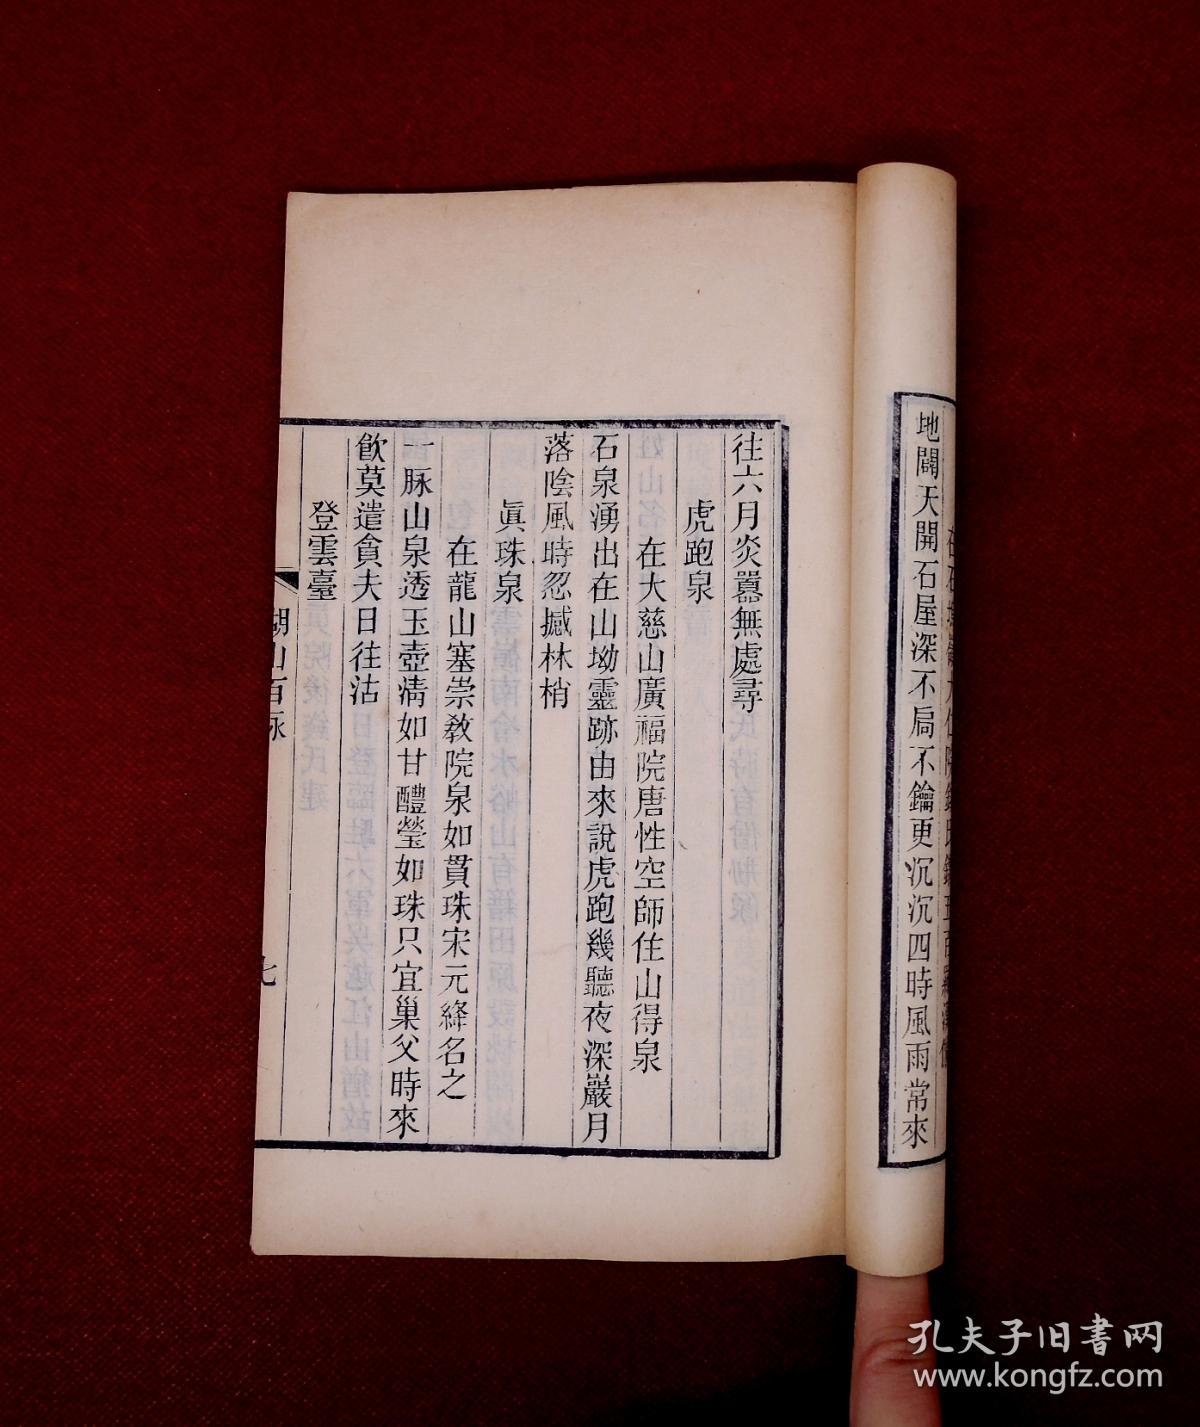 地闢天開石屋深不扃不鑰更沉沉四時風雨常來
往六月炎囂無處尋
虎跑泉
在大慈山廣福院唐性空師住山得泉
石泉湧出在山坳靈跡由來說虎跑幾聽夜深巖月
落陰風時忽撼林梢
眞珠泉
在龍山塞崇教院泉如貫珠宋元絳名之
一脉山泉透玉壺淸如甘醴瑩如珠只宜巢父時來
飮莫遣貪夫日往沽
登雲臺
湖山百咏
七
孔夫子旧書网
www.kongfz.com